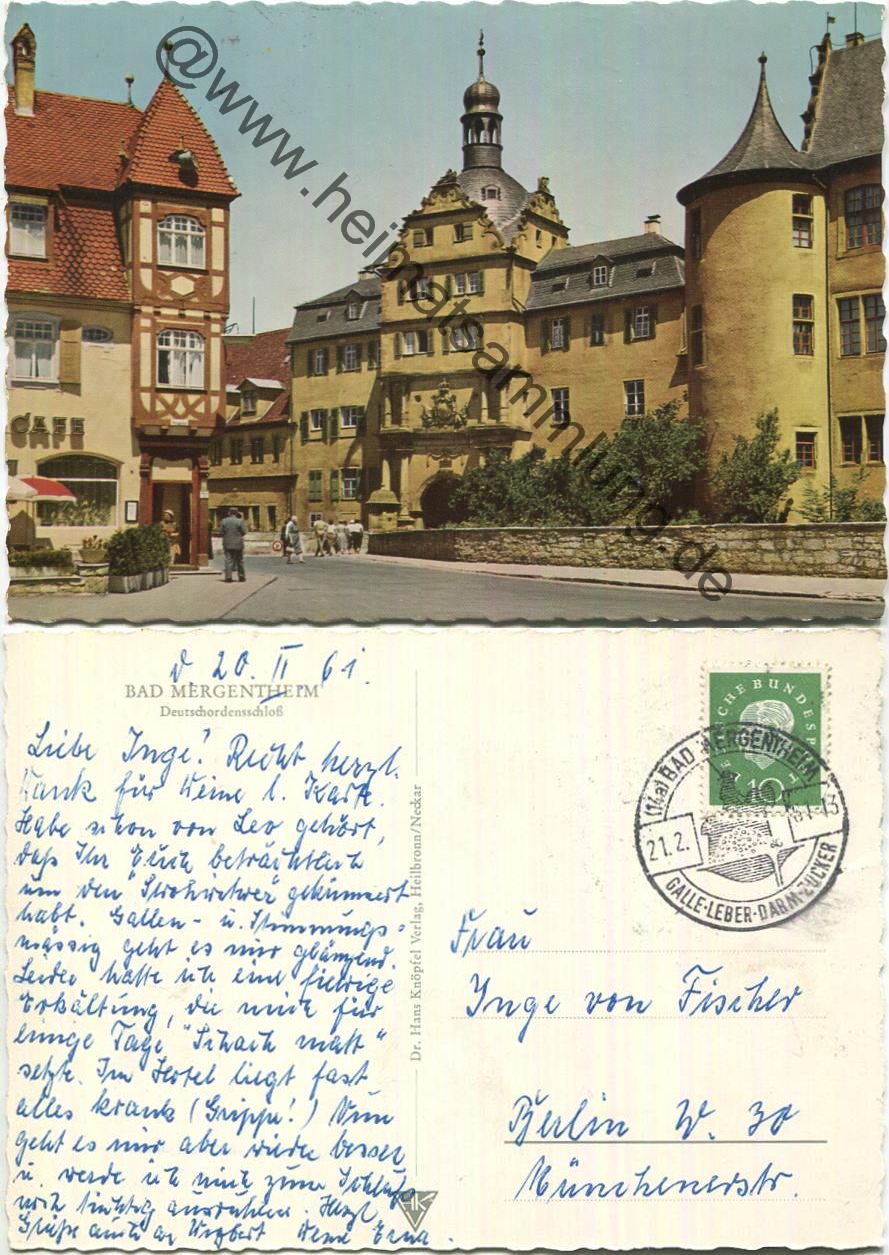 CAFE
@www.heimatsammlung.de
d. 20. II. 61.
BAD MERGENTHEIM
Deutschordensschloß
Liebe Inge! Recht herzl.
Dank für Deine l. Karte.
Habe schon von Leo gehört,
daß Ihr Euch beträchtlich
um den "Strohwitwer" gekümmert
habt. Gallen- u. Stimmungs-
mässig geht es mir glänzend.
Leider hatte ich eine fiebrige
Erkältung, die mich für
einige Tage "Schach matt"
setzte. Im Hotel liegt fast
alles krank (Grippe!) Nun
geht es mir aber wieder besser
u. werde ich mich zum Schluß
noch tüchtig ausruhen. Herzl.
Grüße auch an Wigbert Deine Erna.
Dr. Hans Knöpfel Verlag, Heilbronn/Neckar
HK
DEUTSCHE BUNDESPOST
10
(14a) BAD MERGENTHEIM
21.2. 61-13
GALLE-LEBER-DARM-ZUCKER
Frau
Inge von Fischer
Berlin W. 30
Münchenerstr.